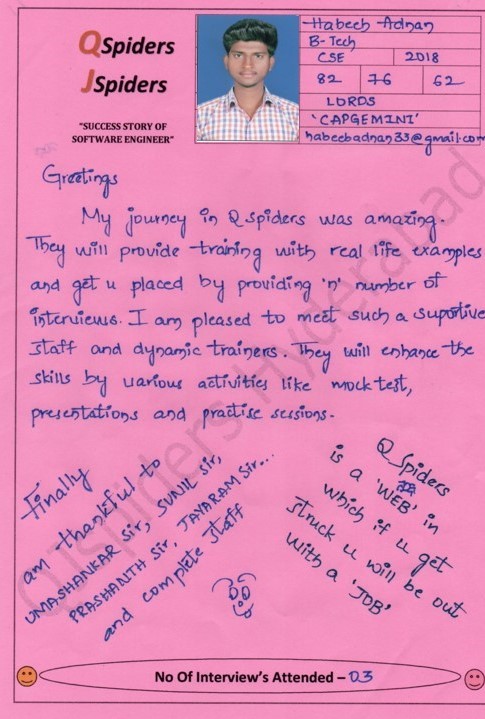 QSpiders
JSpiders
"SUCCESS STORY OF
SOFTWARE ENGINEER"
Habeeb Adnan
B-Tech
CSE 2018
82 76 62
LORDS
'CAPGEMINI'
habeebadnan33@gmail.com
Greetings
My journey in Q spiders was amazing.
They will provide training with real life examples
and get u placed by providing 'n' number of
interviews. I am pleased to meet such a suportive
staff and dynamic trainers. They will enhance the
skills by various activities like mock test,
presentations and practise sessions.
Finally
am thankful to
UMASHANKAR sir, SUNIL sir,
PRASHANTH sir, JAYARAM sir...
and complete staff
Q Spiders
is a 'WEB' in
which if u get
struck u will be out
with a 'JOB'
No Of Interview's Attended – 03
QJSpiders Hyderabad